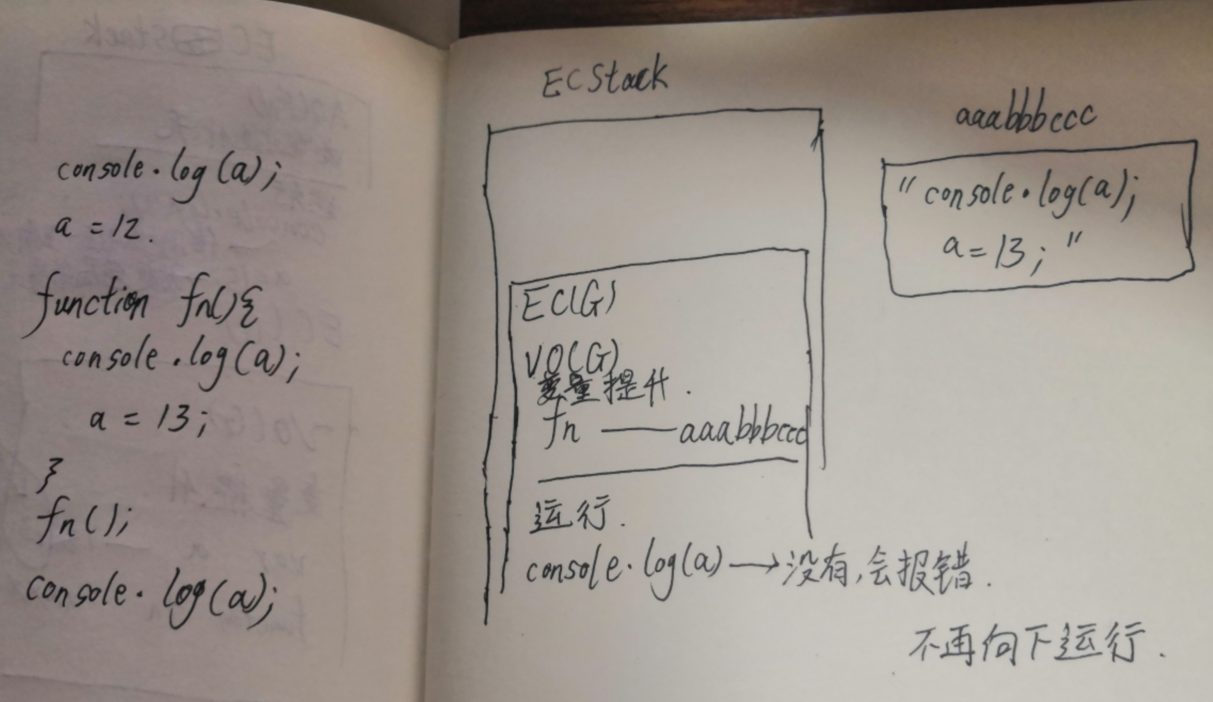 console.log(a);
a = 12.
function fn(){
console.log(a);
a = 13;
}
fn();
console.log(a);
ECStack
EC(G)
VO(G)
变量提升.
fn —— aaabbbccc
运行.
console.log(a) → 没有,会报错.
不再向下运行.
aaabbbccc
"console.log(a);
a = 13; "